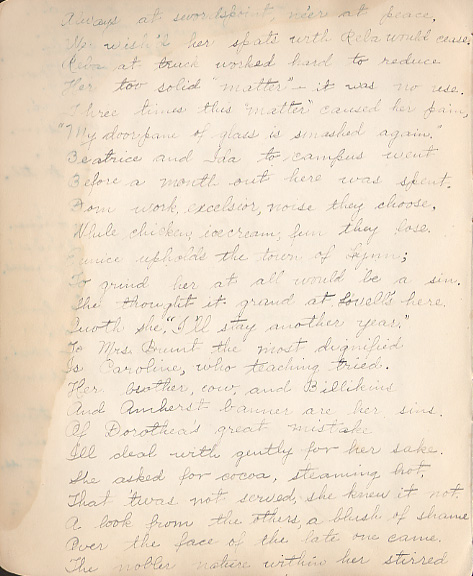 Always at swordspoint, ne'er at peace,
We wish'd her spats with Reba would cease;
Reba at truck worked hard to reduce
Her too solid "matter" - it was no use.
Three times this "matter" caused her pain,
"My doorpane of glass is smashed again."
Beatrice and Ida to campus went
Before a month out here was spent.
Dorm work, excelsior, noise they choose,
While chicken, icecream, fun they lose.
Eunice upholds the town of Lynn;
To grind her at all would be a sin.
She thought it grand at Lovell's here.
Quoth she, "I'll stay another year."
To Mrs. the most dignified
Is Caroline, who teaching tried.
Her brother, cow, and Billikins
And Amherst banner are her sins.
Of Dorothea's great mistake
I'll deal with gently for her sake.
She asked for cocoa, steaming hot.
That 'twas not served, she knew it not.
A look from the others, a blush of shame
Over the face of the late one came.
The nobler nature within her stirred